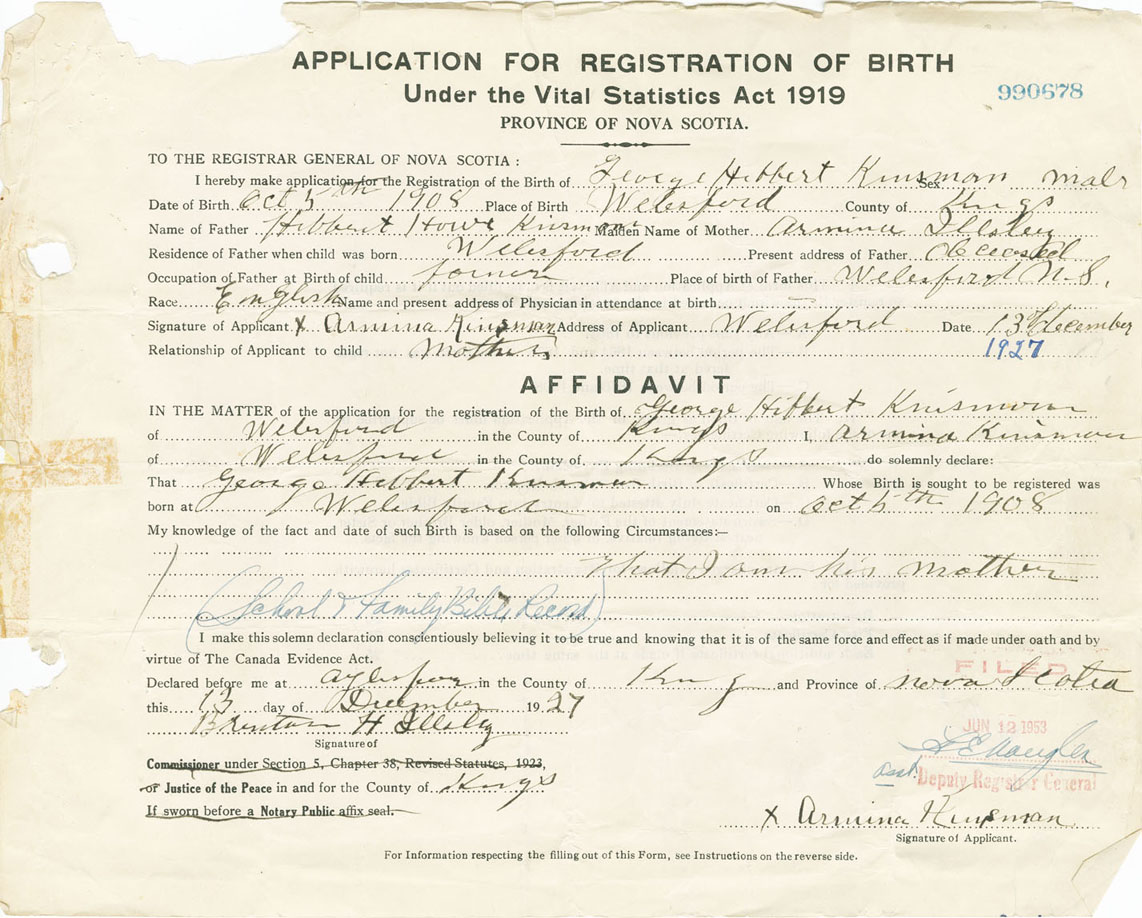 APPLICATION FOR REGISTRATION OF BIRTH
Under the Vital Statistics Act 1919
990678
PROVINCE OF NOVA SCOTIA.
TO THE REGISTRAR GENERAL OF NOVA SCOTIA :
I hereby make application for the Registration of the Birth of George Hibbert Kinsman Sex male
Date of Birth Oct 5th 1908 Place of Birth Welesford County of Kings
Name of Father Hibbert Howe Kinsman Maiden Name of Mother Armina Illsley
Residence of Father when child was born Welesford Present address of Father Deceased
Occupation of Father at Birth of child farmer Place of birth of Father Welesford N.S.
Race English Name and present address of Physician in attendance at birth
Signature of Applicant X Armina Kinsman Address of Applicant Welesford Date 13 of December
Relationship of Applicant to child Mother 1927
AFFIDAVIT
IN THE MATTER of the application for the registration of the Birth of George Hibbert Kinsman
of Welesford in the County of Kings I, Armina Kinsman
of Welesford in the County of Kings do solemnly declare:
That George Hibbert Kinsman Whose Birth is sought to be registered was
born at Welesford on Oct 5th 1908
My knowledge of the fact and date of such Birth is based on the following Circumstances:—
That I am his Mother
(School & Family Bible Record)
I make this solemn declaration conscientiously believing it to be true and knowing that it is of the same force and effect as if made under oath and by
virtue of The Canada Evidence Act.
FILED
Declared before me at Aylesford in the County of Kings and Province of Nova Scotia
this 13 day of December 1927
Brenton H Illsley
JUN 12 1953
Signature of
Commissioner under Section 5, Chapter 38, Revised Statutes, 1923,
Asst. Deputy Registrar General
or Justice of the Peace in and for the County of Kings
If sworn before a Notary Public affix seal.
X Armina Kinsman
Signature of Applicant.
For Information respecting the filling out of this Form, see Instructions on the reverse side.